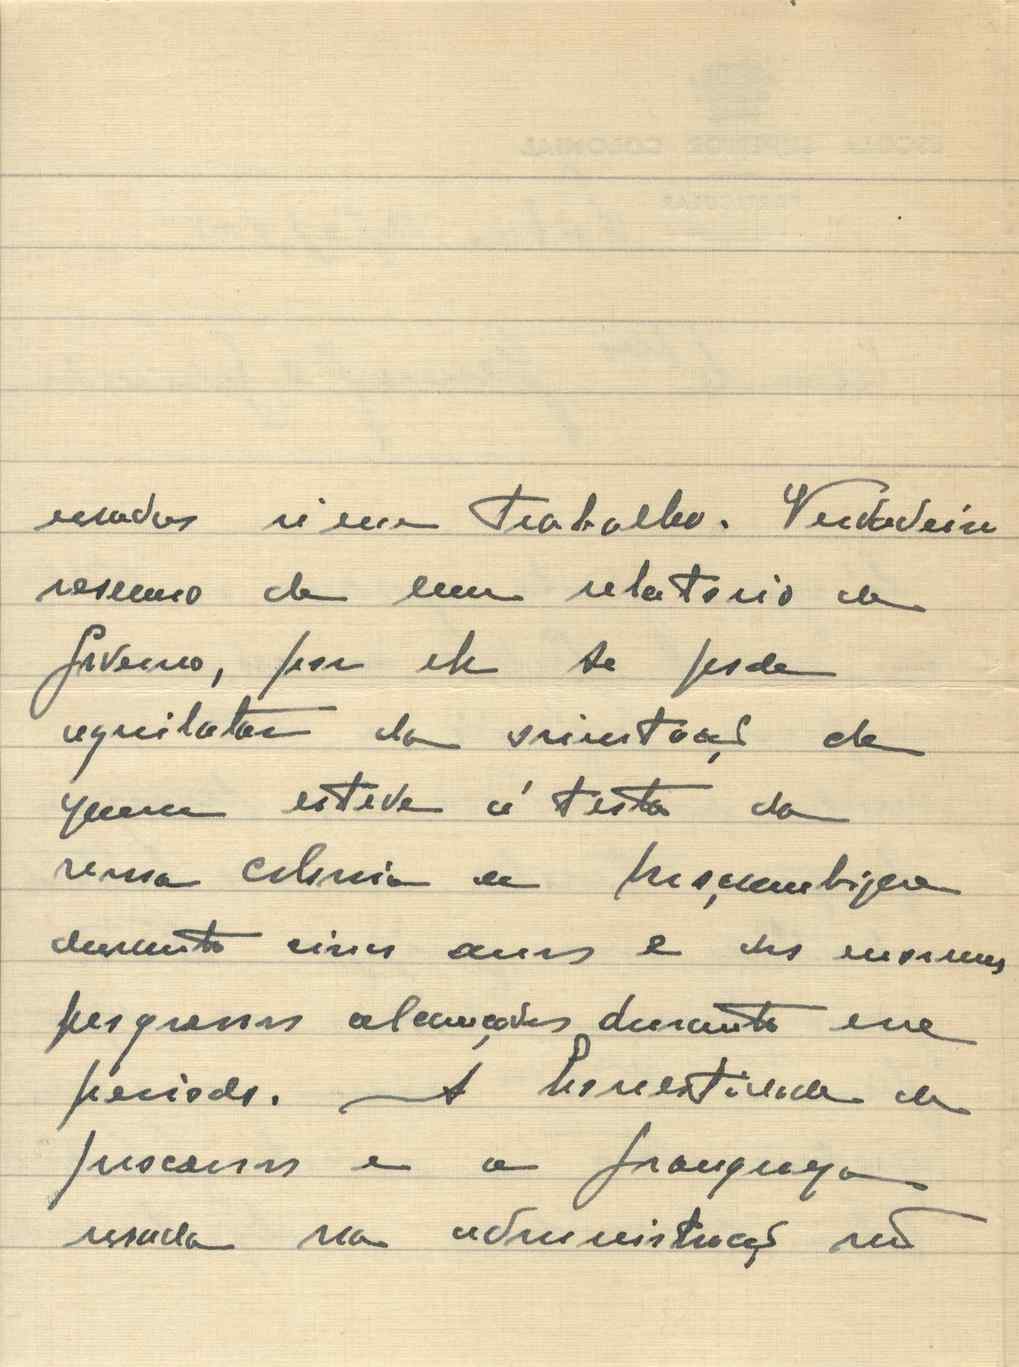 ESCOLA SUPERIOR COLONIAL
PARTICULAR
trabalho. Verdadeiro
resumo de um relatorio de
Governo, por ele se pode
aquilatar da orientação de
quem esteve á testa da
nossa Colonia de Moçambique
durante cinco anos e dos enormes
progressos alcançados durante esse
periodo. — A honestidade de
processos e a franqueza
usada na administração não